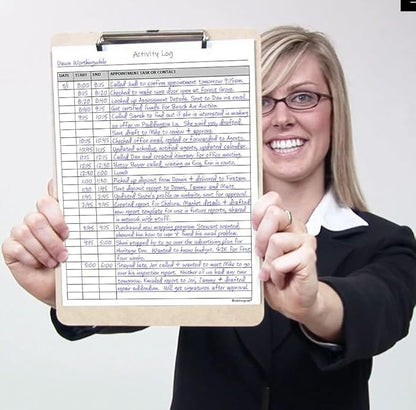 Activity Log
Dawn Worthingdale
DATE START END APPOINTMENT TASK OR CONTACT
8:00 8:15 Called Judi to confirm appointment tomorrow
8:15 8:20 Checked to make sure door open at Forest Grove.
8:20 8:40 Looked up Assessment Details. Sent to Dan via email.
8:40 9:15 Got certified funds for Beach Ave Auction.
9:15 10:15 Called Sarah to find out if she is interested in making
an offer on Paddington Ln. She said yes, drafted
Sent draft to Mike to review + approve.
10:15 10:45 Checked office email, replied or forwarded to Agents.
10:45 11:15 Updated schedule, notified agents, updated calendar.
11:15 12:15 Called Dan and created itinerary for office meeting.
12:15 12:30
12:30 1:00 Lunch
1:00 1:30 Picked up deposit from Dennis + delivered to
1:30 1:45 Sent deposit report to Dennis, Tammy and Mike.
1:45 2:45 Updated profile on website, sent for approval.
2:45 3:45 Created report for Chelsea, Market details + drafted
new report template for use in future reports, shared
in network with group.
3:45 4:45 Purchased new mapping program Stewart wanted
showed him how to use + found his email problem.
4:45 5:00 Sham stopped by to go over the advertising plan for
Heritage Dev. Wanted to know budget. 42K for First
four weeks.
5:00 6:00 Stayed late, Jer called + wanted to meet Mike to go
over his inspection report. Neither of us had any time
tomorrow. Emailed report to Jer, Tammy + drafted
repair addendum. Will get signatures after approval.